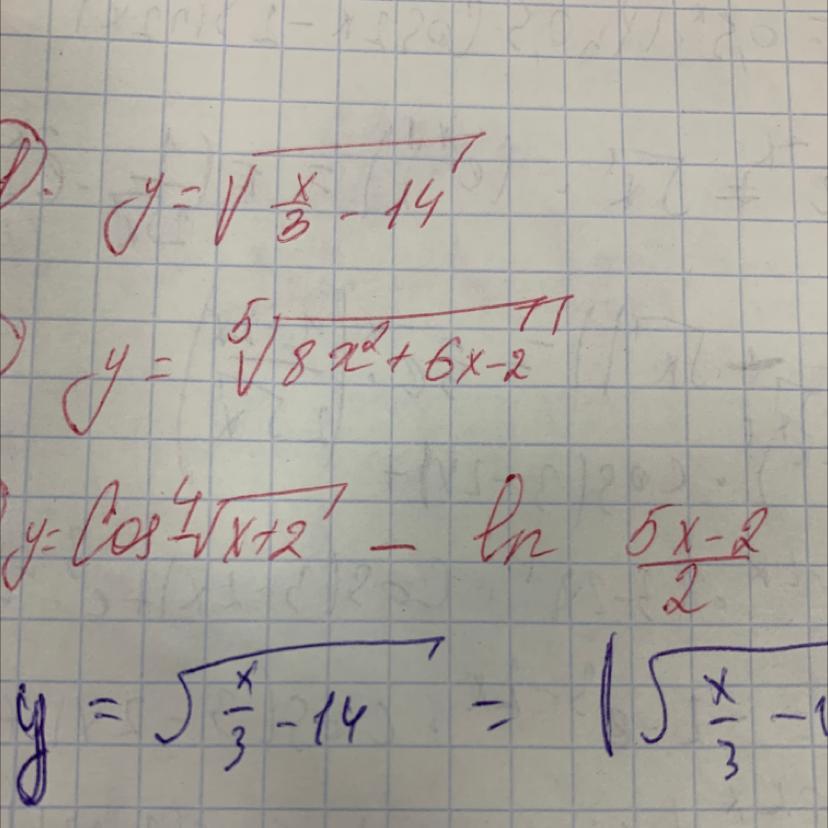 y = √(x/3 - 14)
y = ⁵√(8x² + 6x - 2)
y = Cos ⁴√(x+2) - ln (5x-2)/2
y = √(x/3 - 14) = (√(x/3 -